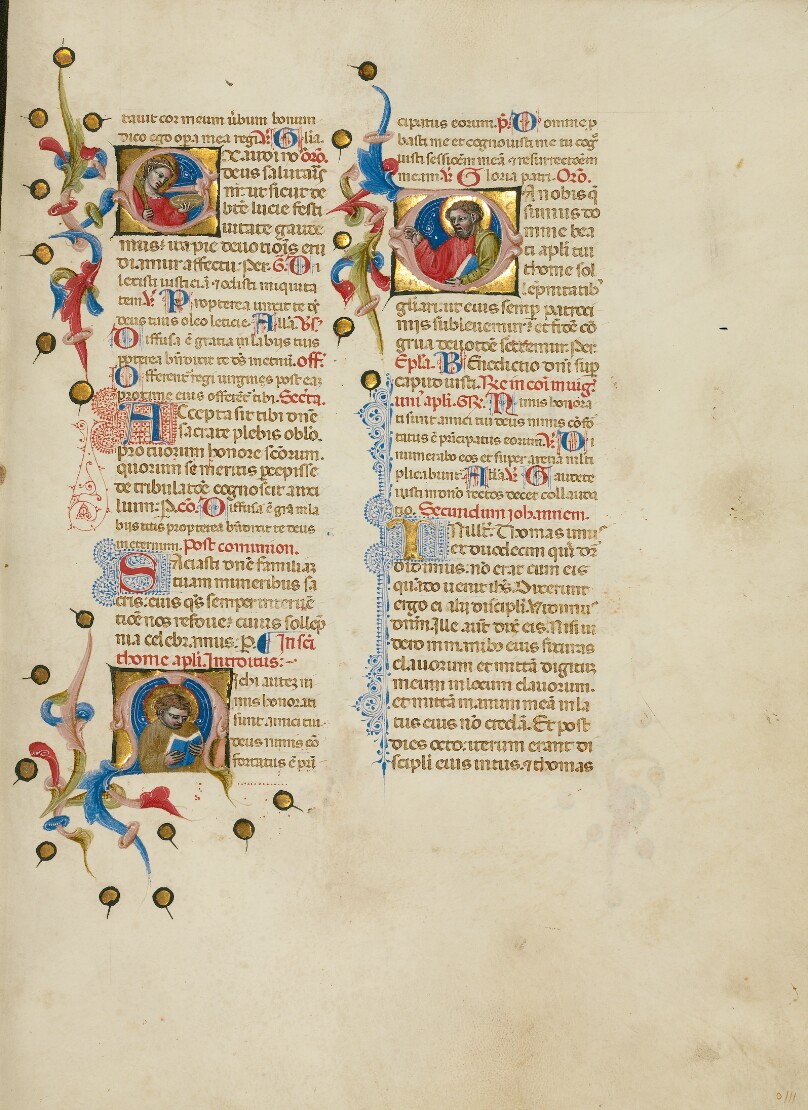 tauit cor meum ủbum bonum
dico ego opa mea regi. V. Glia.
Exaudi no oro.
deus salutaris
nr. ut sicut de
bte lucie festi
uitate gaude
mus: ita pie deuotiois eru
diamur affectu. Per. G. Di
lexisti iusticiā ⁊ odisti iniquita
tem V. Propterea unxit te ds
deus tuus oleo leticie. Alla. Vs.
Diffusa ē gratia in labiis tuis
ppterea bndixit te ds in eternū. off.
Offerent regi uirgines post eaz
proxime eius offerēt tibi. Secta.
Accepta sit tibi dne
sacrate plebis oblo.
pro tuorum honore scorum.
quorum se meritis pcepisse
de tribulatōe cognoscit auxi
lium. P. Co. Diffusa ē gra in la
biis tuis propterea bndixit te deus
in eternum. Post communion.
Saciasti dne familiaz
tuam muneribus sa
cris: eius qs semper interuē
tiōe nos refoue: cuius sollēp
nia celebramus. P. In sci
thome apli. Introitus:
Michi autez ni
mis honorati
sunt amici tui.
deus nimis cō
fortatus ē pri
cipatus eorum. p. Domine p
basti me et cognouisti me tu cog
uisti sessiōem meā ⁊ resurrectiōem
meam V. Gloria patri. Oro.
Da nobis q
sumus do
mine bea
ti apli tui
thome sol
lepnitatib
gliari. ut eius semp patroci
niis subleuemur: et fidē cō
grua deuotōe sectemur. Per.
Epla. Benedictio dni sup
caput iusti. Re in coi in uigʳ
uni apli. GR. Nimis honora
ti sunt amici tui deus nimis cōfo
tatus ē pricipatus eorum. V. Di
numerabo eos et super arena mlti
plicabunt. Alla V. Gaudete
iusti in dno rectos decet collauda
tio. Secundum iohannem.
In illt. Thomas unus
ex duodecim qui dr
didimus. nō erat cum eis
quādo uenit ihs. Dixerunt
ergo ei alii discipli. Vidimus
dnm. Ille aūt dixē eis. Nisi ui
dero in manibus eius fixuras
clauorum et mittā digitum
meum in locum clauorum.
et mittā manum meā in la
tus eius nō credā. Et post
dies octo: iterum erant di
scipli eius intus. ⁊ thomas